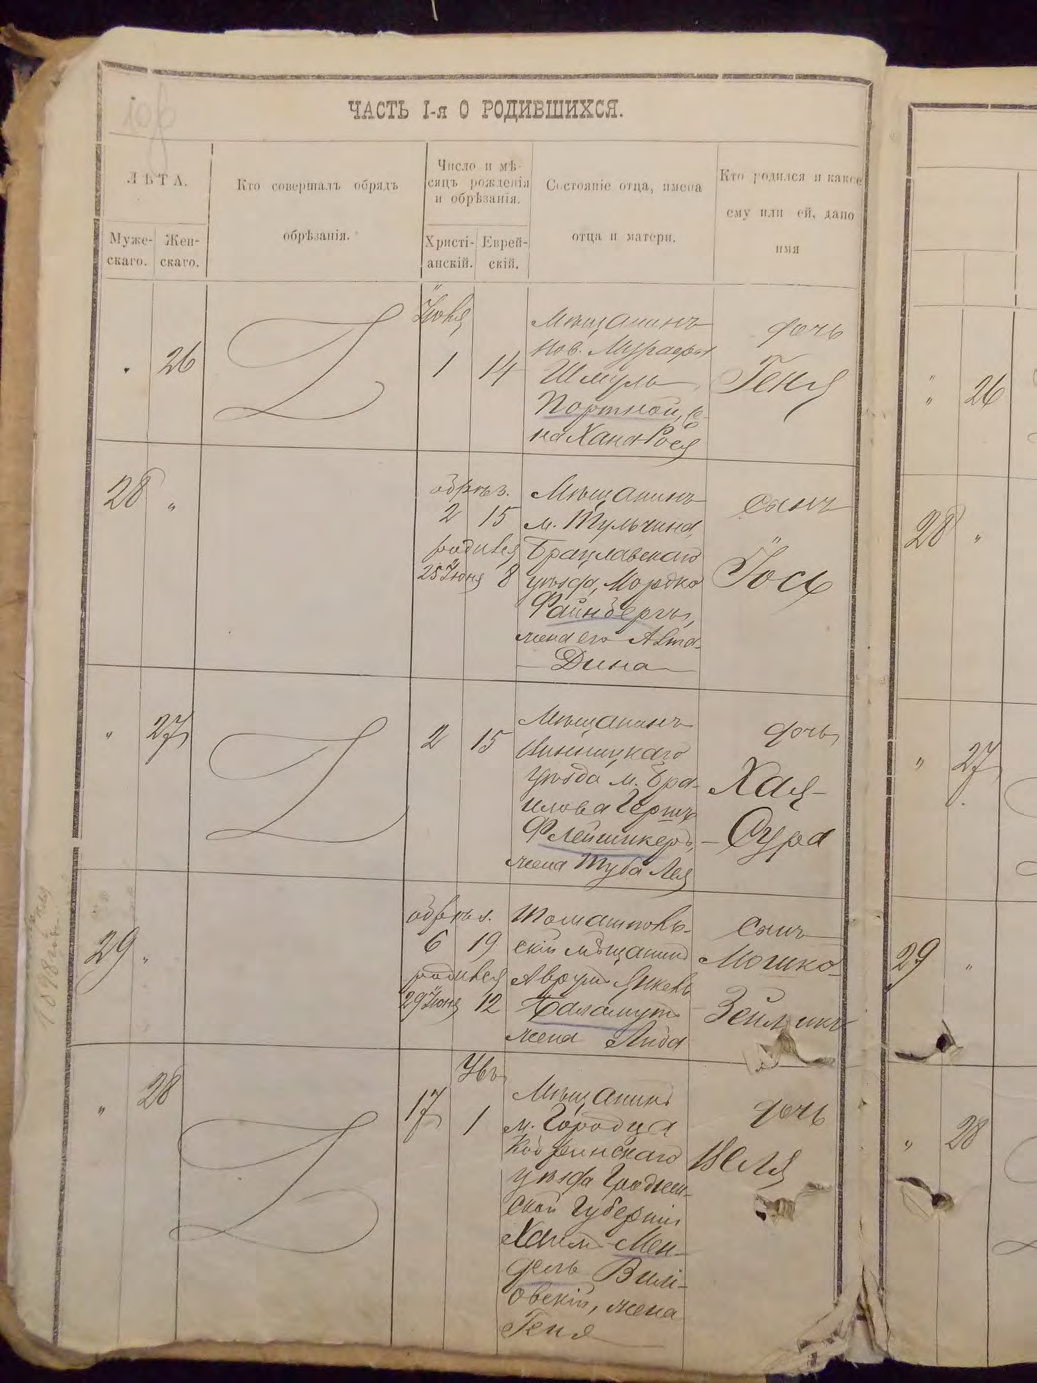 ЧАСТЬ I-я О РОДИВШИХСЯ.
ЛѢТА.
Муже-
скаго.
Жен-
скаго.
Кто совершалъ обрядъ
обрѣзанія.
Число и мѣ-
сяцъ рожденія
и обрѣзанія.
Христі-
анскій.
Еврей-
скій.
Состояніе отца, имена
отца и матери.
Кто родился и какое
ему или ей, дано
имя
26
Іюля
1
14
Мѣщанинъ
пов. Мурафы
Шмуль
Портной, же-
на Хана-Рося
дочь
Геня
26
28 "
обрѣз.
2 15
родился
25 Іюня 8
Мѣщанинъ
м. Тульчина,
Брацлавскаго
уѣзда, Мордко
Файнбергъ,
жена его
Дина
сынъ
Іось
28 "
" 27
2 15
Мѣщанинъ
Винницкаго
уѣзда м. Бра-
илова Гершъ
Флейшикеръ,
жена Туба Лея
дочь
Хая-
- Сура
" 27
29 "
обрѣз.
6 19
родился
29 Іюня 12
Томашполь-
скій мѣщанинъ
Аврумъ Янкель
Баламутъ
жена Лида
сынъ
Мошко-
Зейликъ
29 "
" 28
17
1
Мѣщанинъ
м. Городца
Кобринскаго
уѣзда Гроднен-
ской Губерніи
Хаимъ Мен-
дель Вили-
овскій, жена
Геня
дочь
Неля
" 28